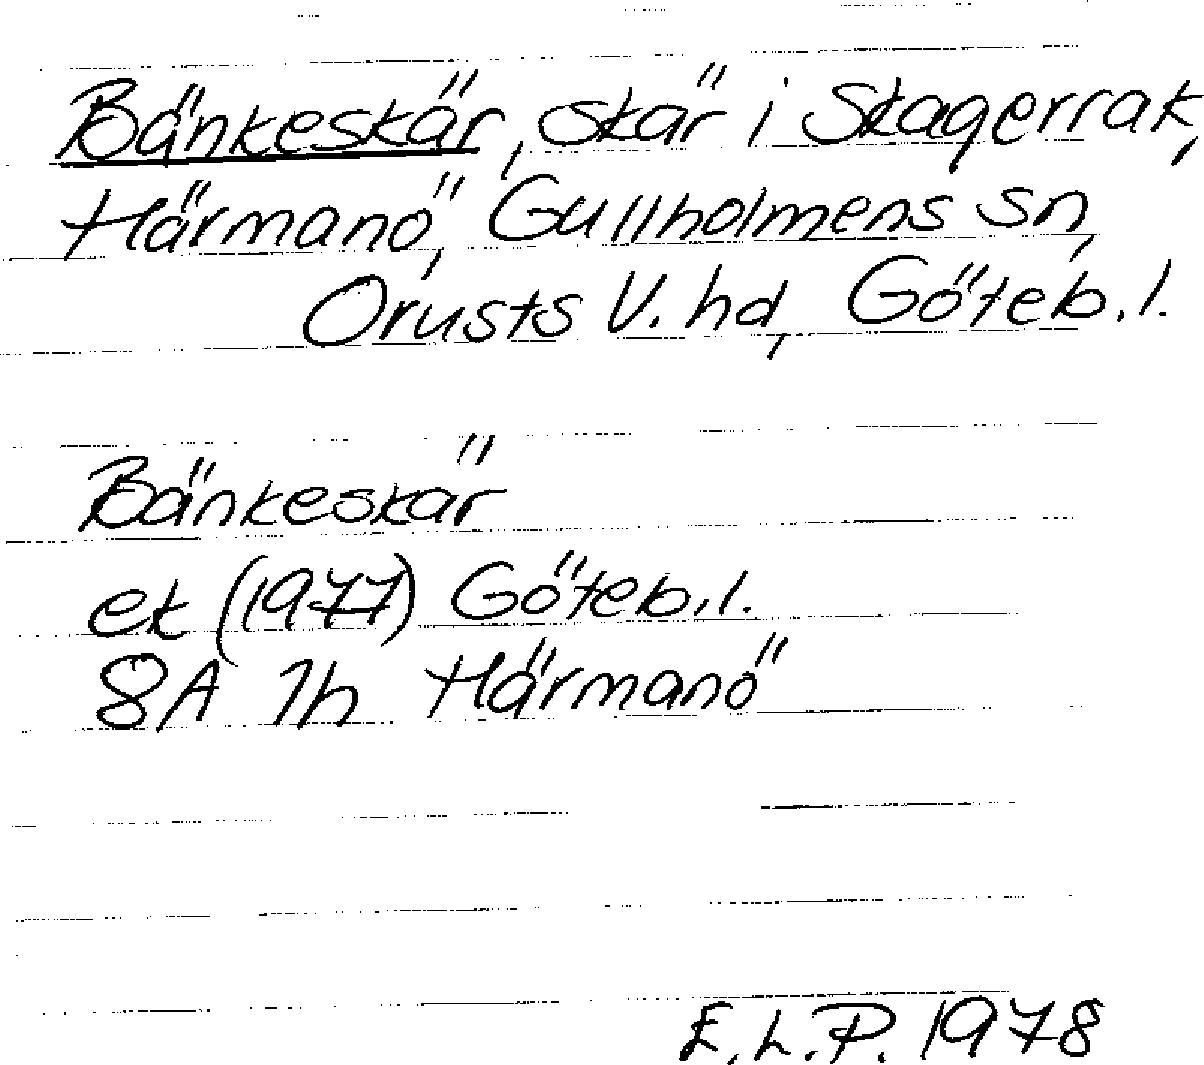 Bänkeskär, skär i Skagerrak,
Härmanö, Gullholmens sn,
Orusts V. hd, Göteb. l.
Bänkeskär
ek (1977) Göteb. l.
8A 1h Härmanö
E. L. P. 1978